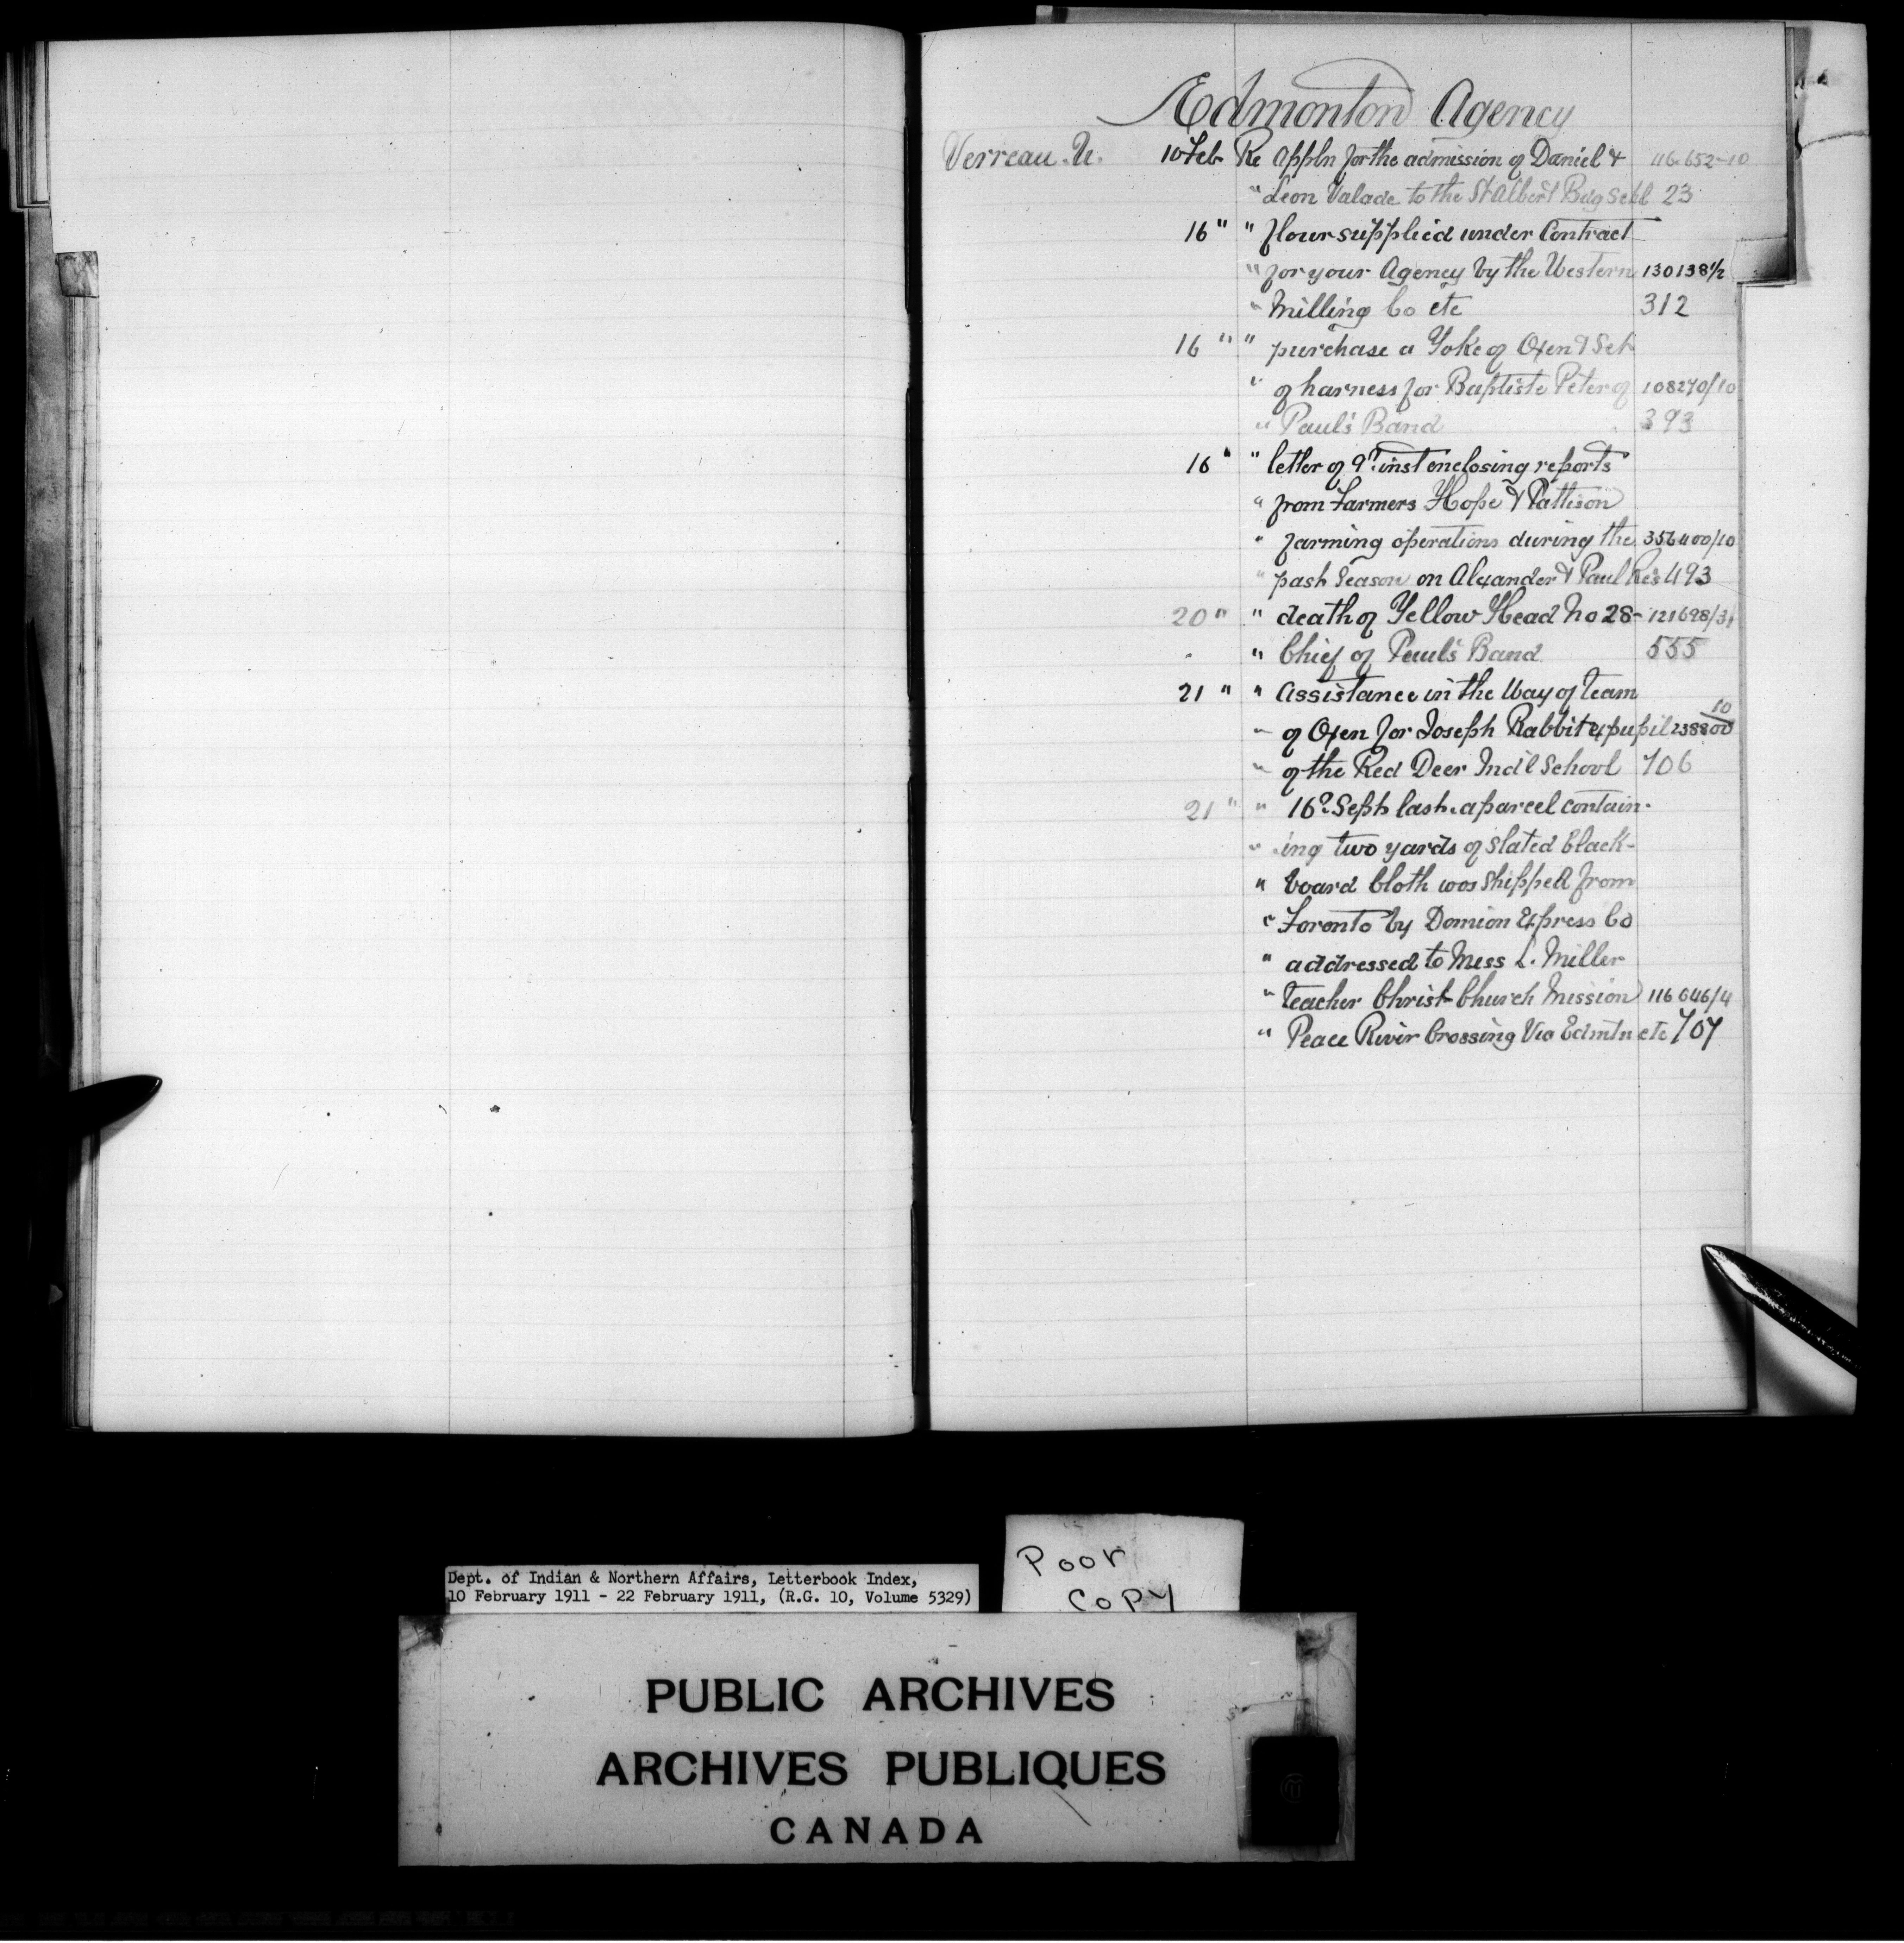 Edmonton Agency
Verreau. U. 10 Feb Re Appln for the admission of Daniel & 116.652-10
" Leon Valade to the St Albert Bdg Schl 23
16 " " flour supplied under Contract
" for your Agency by the Western 130138 1/2
" Milling Co etc 312
16 " " purchase a Yoke of Oxen & Set
" of harness for Baptiste Peter of 108270/10
" Paul's Band 393
16 " " letter of 9th inst enclosing reports
" from Farmers Hope & Pattison
" farming operations during the 356400/10
" past Season on Alexander & Paul Res 493
20 " " death of Yellow Head No 28- 121698/31
" " Chief of Paul's Band 555
21 " " Assistance in the Way of Team
" of Oxen for Joseph Rabbit expupil 238800/10
" of the Red Deer Ind'l School 706
21 " " 16th Sept last. a parcel contain-
" ing two yards of slated black-
" board Cloth was shipped from
" Toronto by Domion Express Co
" addressed to Miss L. Miller
" teacher Christ Church Mission 116646/4
" Peace River Crossing Via Edmtn etc 707
Poor
COPY
Dept. of Indian & Northern Affairs, Letterbook Index,
10 February 1911 - 22 February 1911, (R.G. 10, Volume 5329)
PUBLIC ARCHIVES
ARCHIVES PUBLIQUES
CANADA